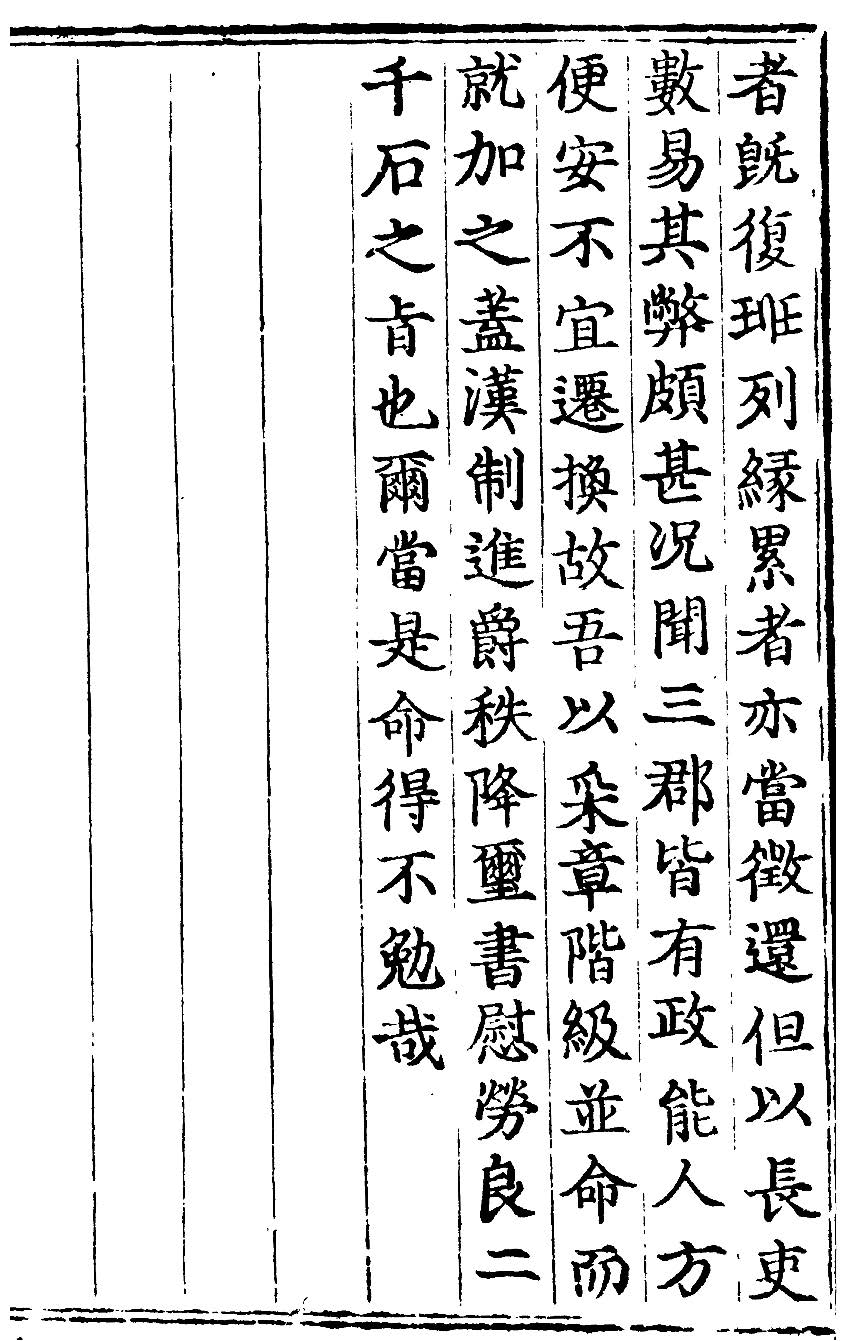 者旣復班列縁累者亦當徵還但以長吏
數易其弊頗甚况聞三郡皆有政能人方
便安不宜遷換故吾以采章階級並命而
就加之蓋漢制進爵秩降璽書慰勞良二
千石之㫖也爾當是命得不勉哉